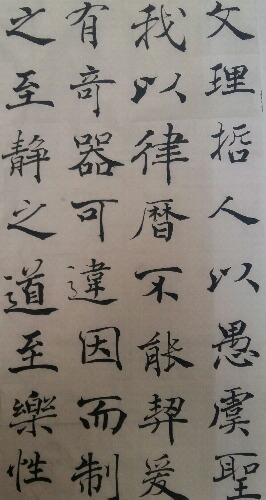 文理哲人以愚虞聖
我以律曆不能契爰
有奇器可違因而制
之至静之道至樂性